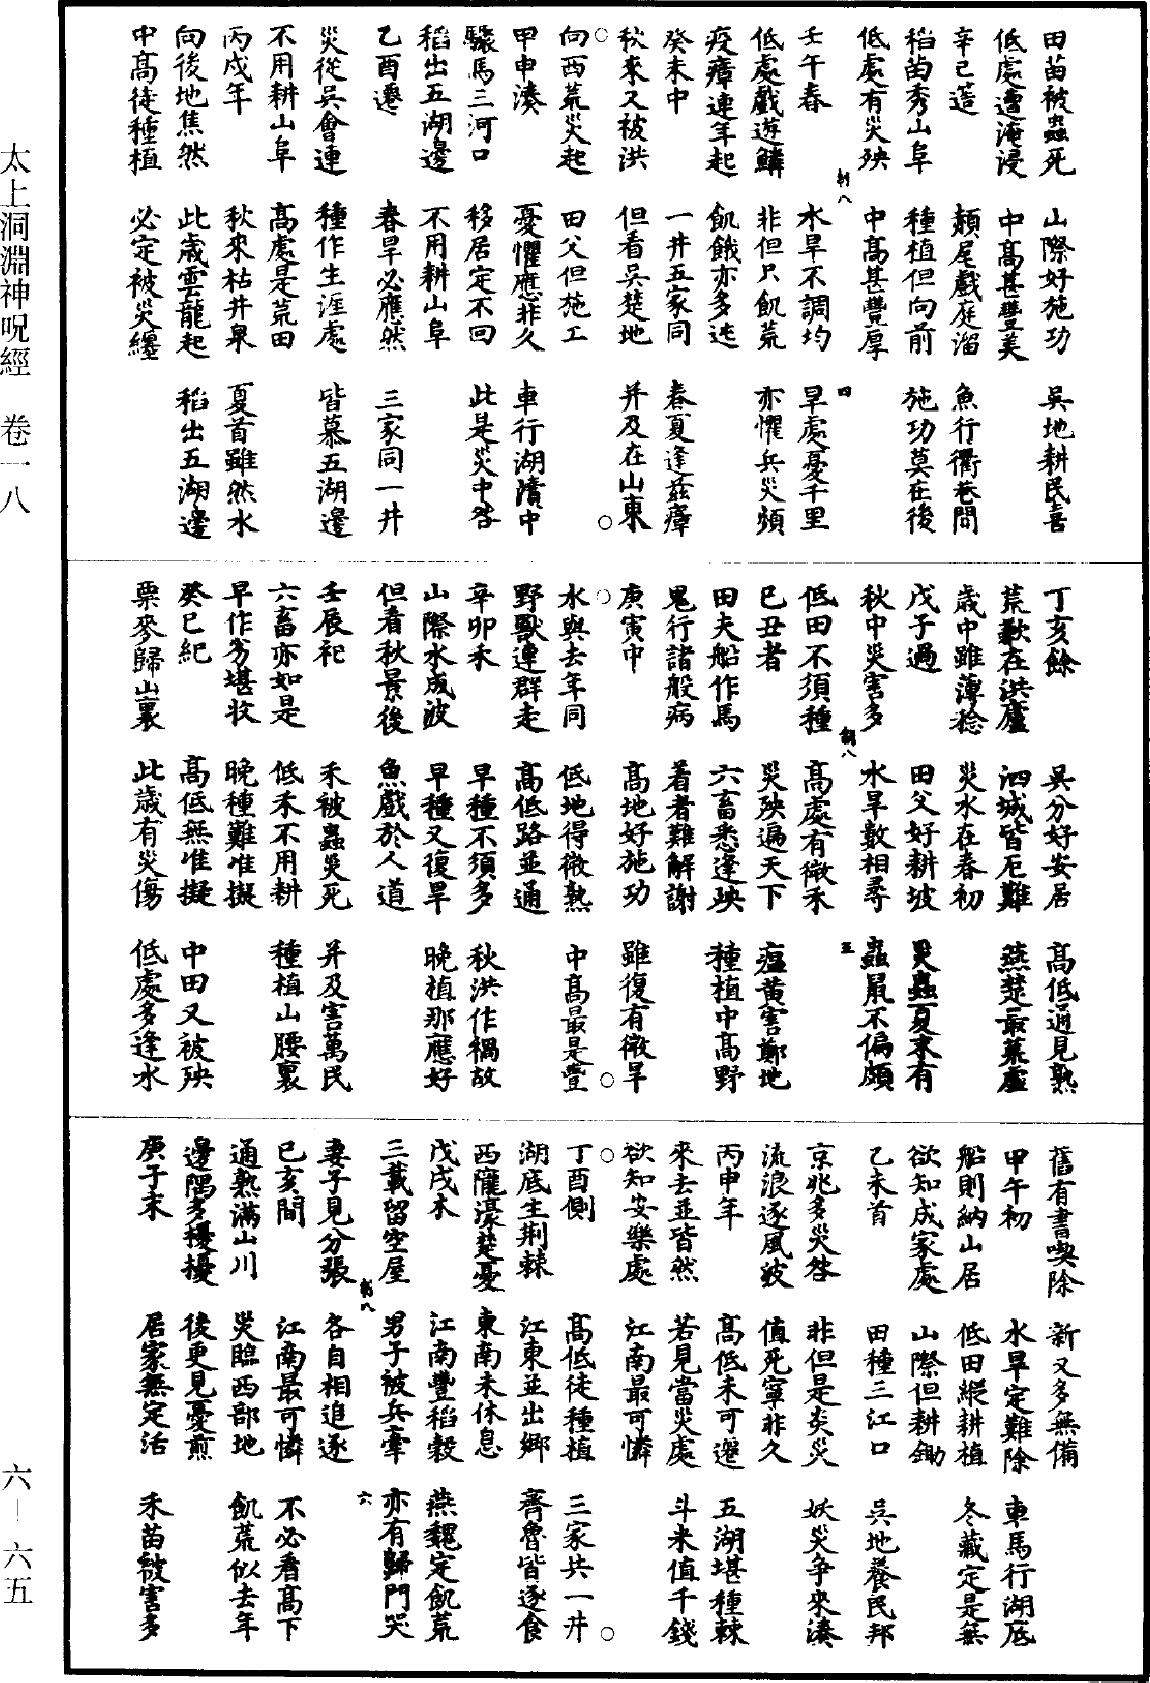 田苗被蟲死　山際好施功　吳地耕民喜
低處遭淹浸　中高甚豐美
辛巳　頳尾戲庭溜　魚行衢巷間
稻苗秀山阜　種植但向前　施功莫在後
低處有災殃　中高甚豐厚
朝八　四
壬午春　水旱不調均　旱處憂千里
低處戲遊鱗　非但只飢荒　亦懼兵災頻
疫瘴連年起　飢餓亦多迍
癸未中　一井五家同　春夏逢茲瘴
秋來又被洪　但看吳楚地　并及在山東
○　○
向西荒災起　田父但施工
甲申湊　憂懼應非久　車行湖濱中
驟馬三河口　移居定不回　此是災中咎
稻出五湖邊　不用耕山阜
乙酉遷　春旱必應然　三家同一井
災從吳會連　種作生涯處　皆慕五湖邊
不用耕山阜　高處是荒田
丙戌年　秋來枯井泉　夏首雖然水
向後地焦然　此歲雲龍起　稻出五湖邊
中高徒種植　必定被災纏
丁亥餘　吳分好安居　高低通見熟
荒歉在洪廬　泗城皆厄難　燕楚最蒸虛
歲中雖薄稔　災水在春初
戊子過　田父好耕坡　災蟲夏末有
秋中災害多　水旱數相尋　蟲鼠不偏頗
朝八　五
低田不須種　高處有微禾
巳丑者　災殃遍天下　瘟黃害鄭地
田夫船作馬　六畜悉逢殃　種植中高野
鬼行諸般病　著者難解謝
庚寅中　高地好施功　雖復有微旱
○　○
水與去年同　低地得微熟　中高最是豐
野獸連群走　高低路並通
辛卯禾　早種不須多　秋洪作禍故
山際水成波　早種又復旱　晚植那應好
但看秋景後　魚戲於人道
壬辰祀　禾被蟲災死　并及害萬民
六畜亦如是　低禾不用耕　種植山腰裏
早作方堪收　晚種難准擬
癸巳紀　高低無准擬　中田又被殃
栗麥歸山裏　此歲有災傷　低處多逢水
舊有書喫除　新又多無備
甲午初　水旱定難除　車馬行湖底
船則納山居　低田縱耕植　冬藏定是無
欲知成家處　山際但耕鋤
乙未首　田種三江口　吳地養民邦
京兆多災咎　非但是炎災　妖災爭來湊
流浪逐風波　值死寧非久
丙申年　高低未可遷　五湖堪種棘
來去並皆然　若見當災處　斗米值千錢
欲知安樂處　江南最可憐
○　○
丁酉側　高低徒種植　三家共一井
湖底生荊棘　江東並出鄉　齊魯皆逐食
西隴濠楚憂　東南未休息
戊戌木　江南豐稻穀　燕魏定飢荒
三載留空屋　男子被兵牽　亦有歸門哭
朝八　六
妻子見分張　各自相追逐
巳亥間　江南最可憐　不必看高下
通熟滿山川　災臨西部地　飢荒似去年
邊隅多擾擾　後更見憂煎
庚子末　居家無定活　禾苗被害多
太上洞淵神呪經　卷一八
六—六五